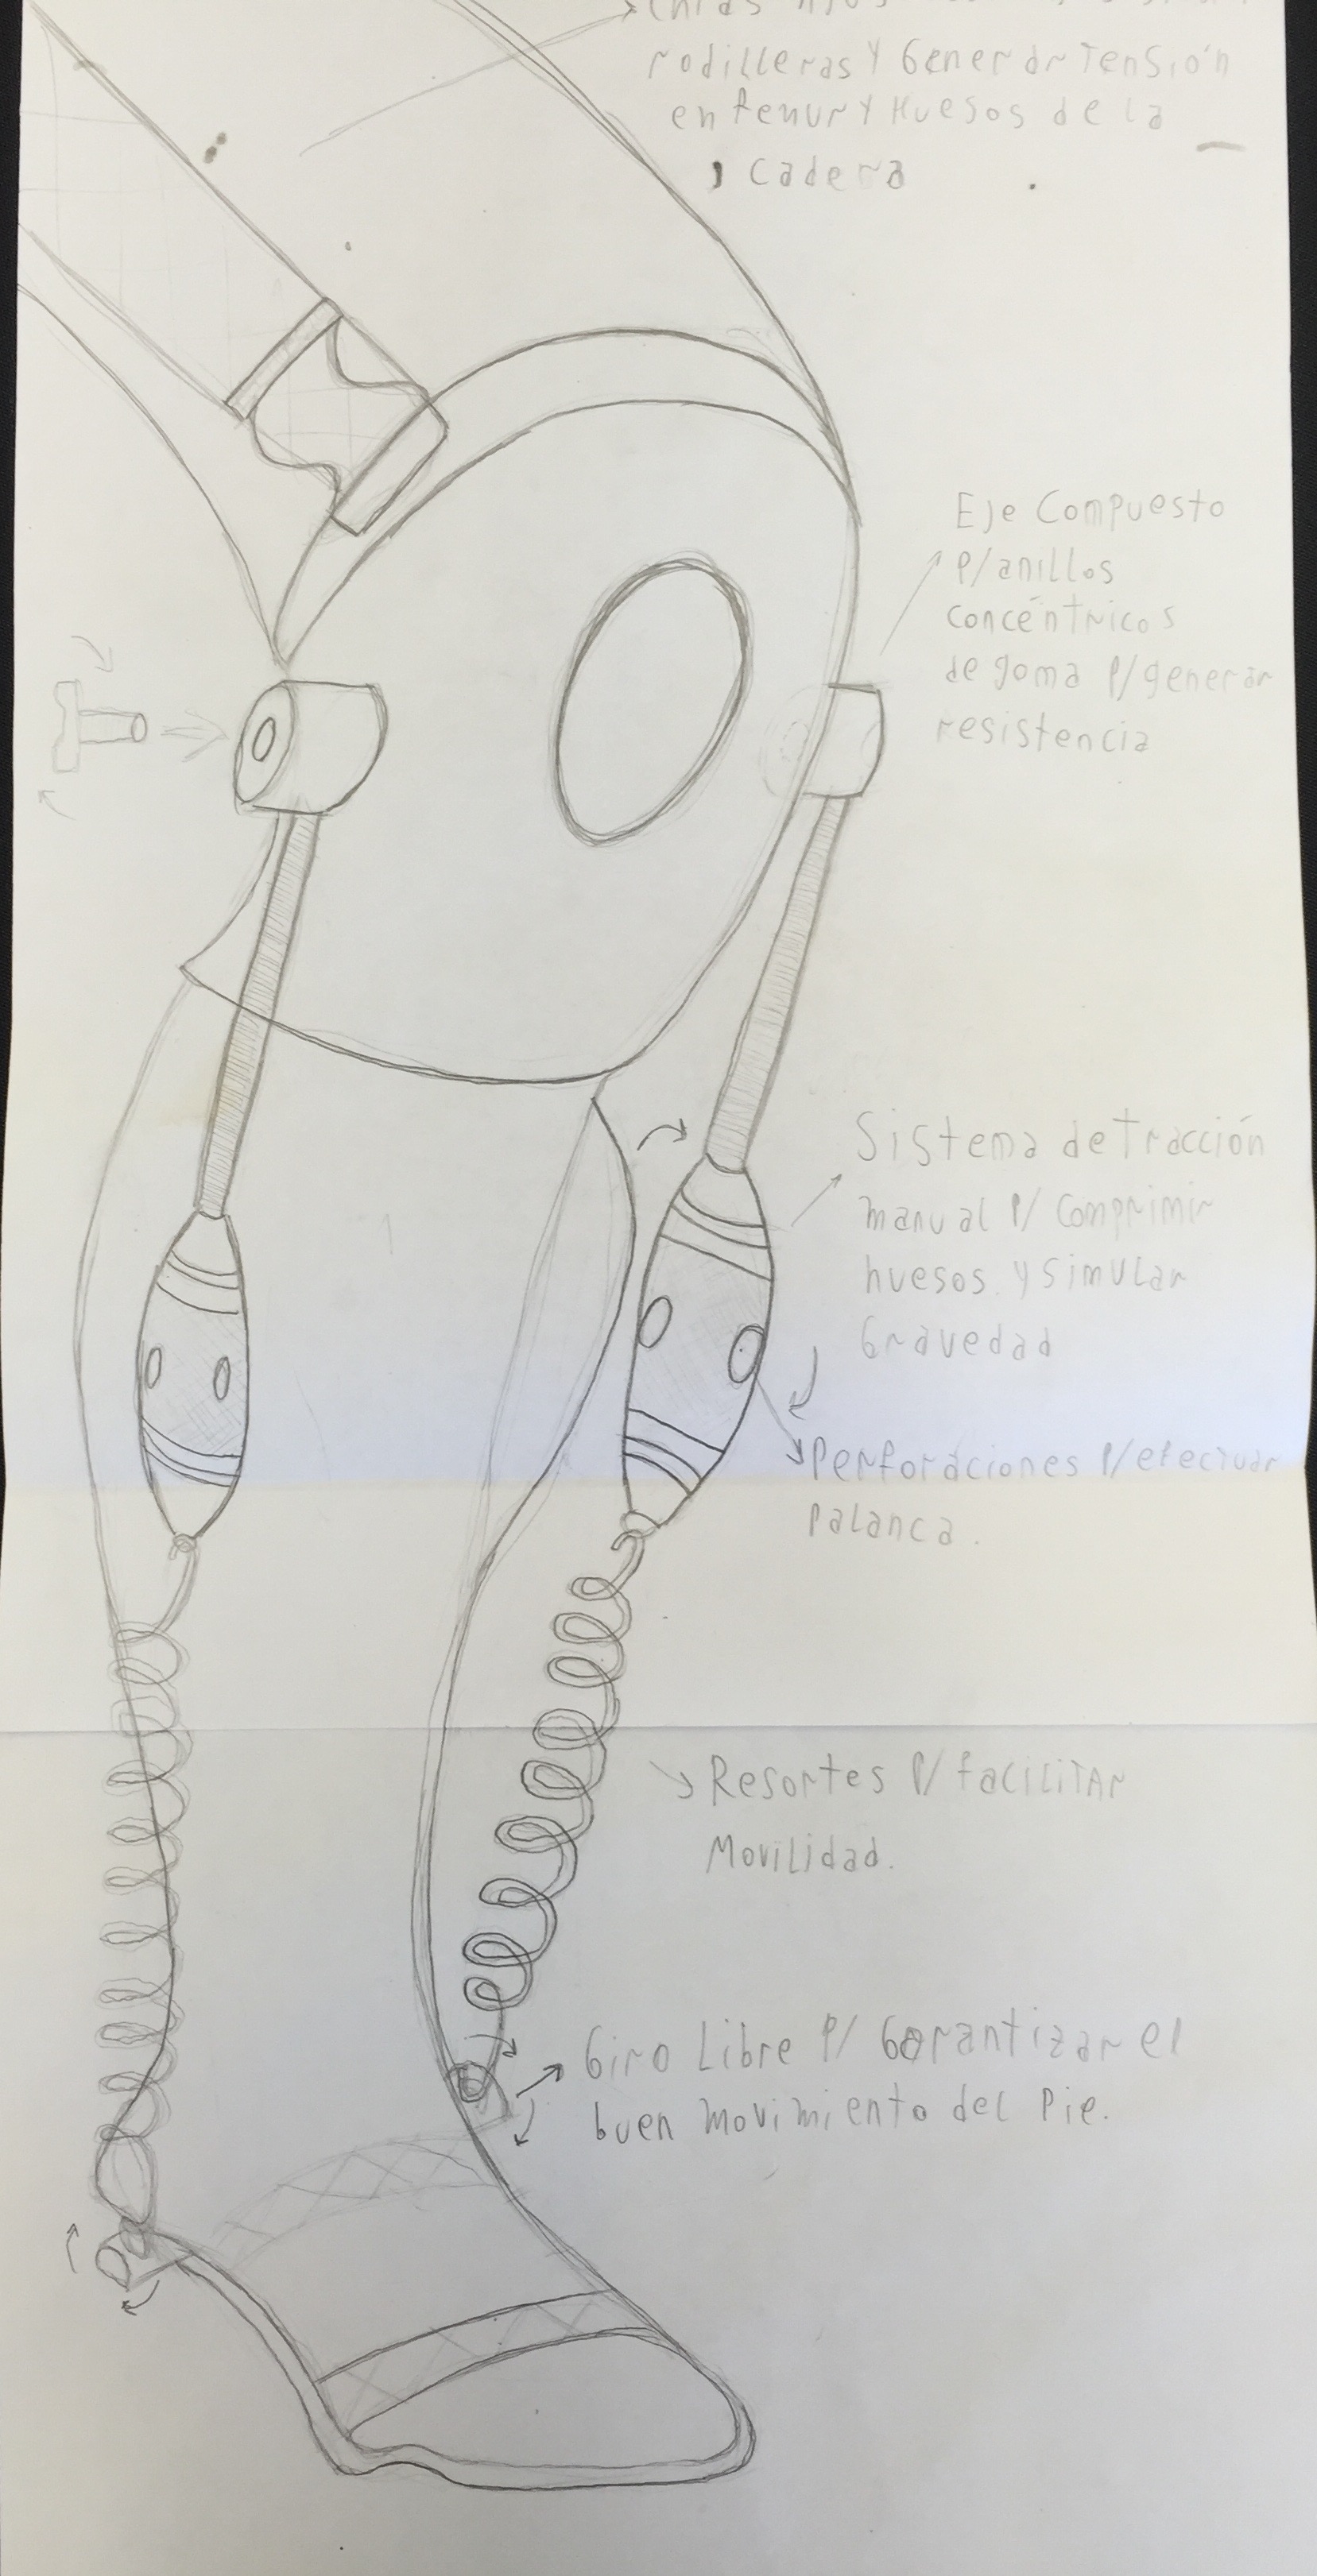 rodilleras y Generar Tensión
en femur y Huesos de la
cadera
Eje Compuesto
P/anillos
concéntricos
de goma P/generar
resistencia
Sistema de Tracción
manual P/ Comprimir
huesos y simular
Gravedad
Perforaciones P/efectuar
Palanca.
Resortes P/ facilitar
Movilidad.
Giro Libre P/ Garantizar el
buen movimiento del Pie.